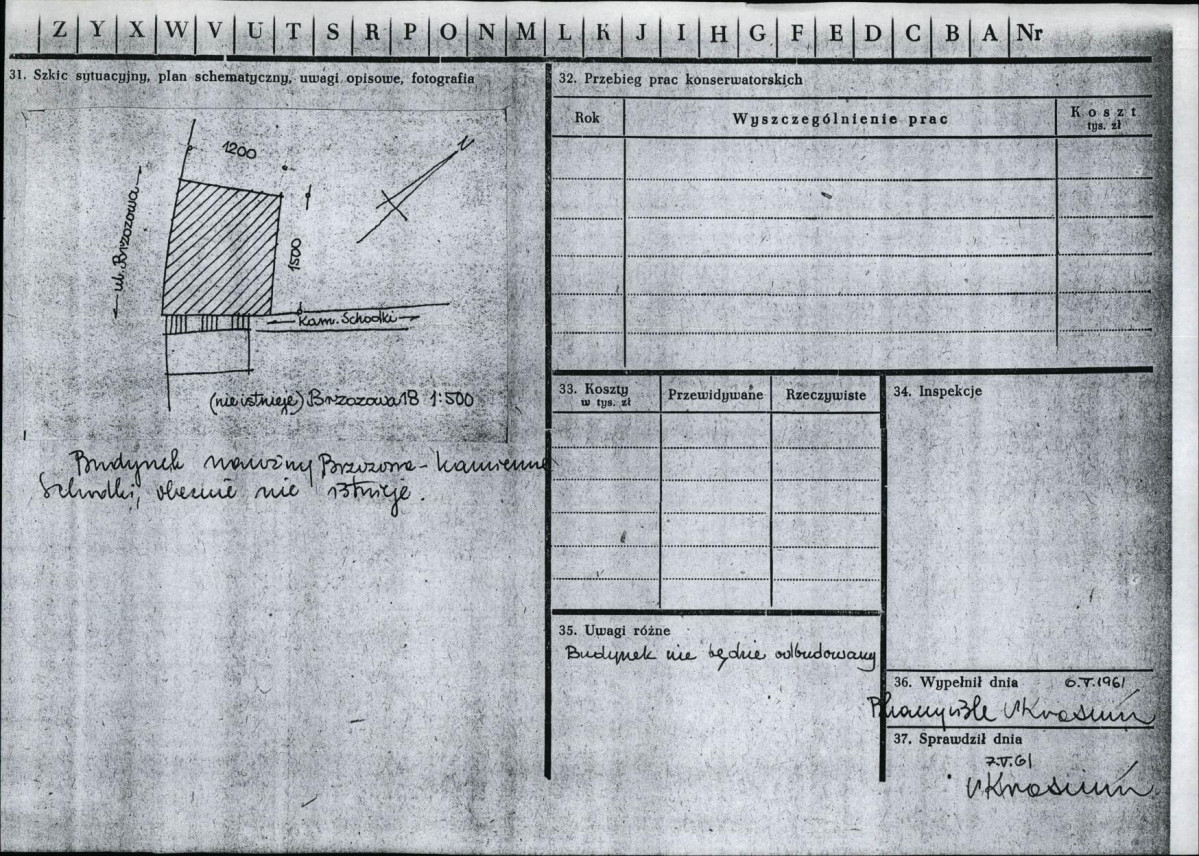 Z Y X W V U T S R P O N M L K J I H G F E D C B A Nr
31. Szkic sytuacyjny, plan schematyczny, uwagi opisowe, fotografia
1200
N
ul. Brzozowa
1500
Kam. Schodki
(nie istnieje) Brzozowa 18 1:500
Budynek narożny Brzozowa - Kamienne
Schodki, obecnie nie istnieje.
32. Przebieg prac konserwatorskich
Rok
Wyszczególnienie prac
Koszt
tys. zł
33. Koszty
w tys. zł
Przewidywane
Rzeczywiste
34. Inspekcje
35. Uwagi różne
Budynek nie będzie odbudowany
36. Wypełnił dnia 6.V.1961
37. Sprawdził dnia
7.V.61